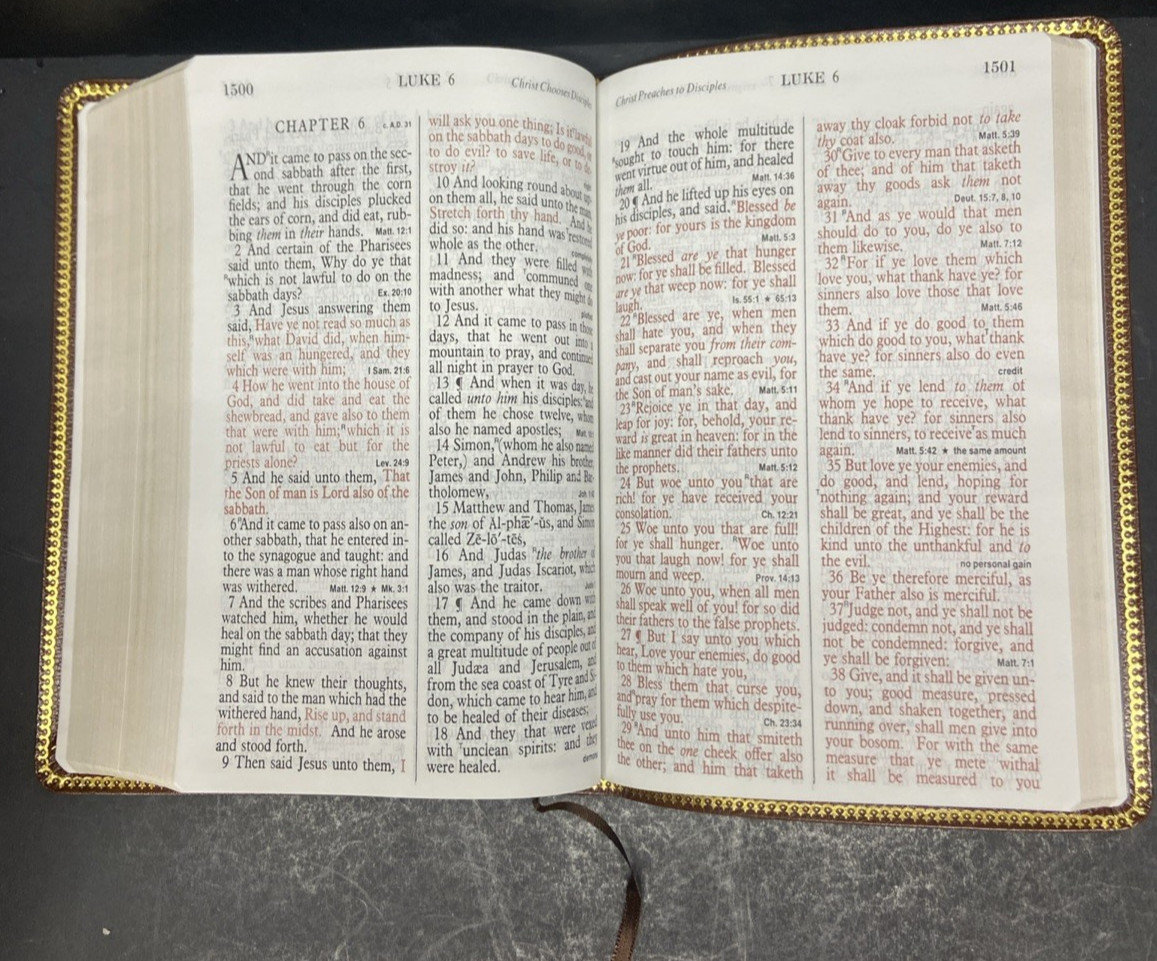 1500
LUKE 6
Christ Chooses
CHAPTER 6 c. A.D. 31
AND it came to pass on the sec-
ond sabbath after the first,
that he went through the corn
fields; and his disciples plucked
the ears of corn, and did eat, rub-
bing them in their hands. Matt. 12:1
2 And certain of the Pharisees
said unto them, Why do ye that
"which is not lawful to do on the
sabbath days? Ex. 20:10
3 And Jesus answering them
said, Have ye not read so much as
this,"what David did, when him-
self was an hungered, and they
which were with him; I Sam. 21:6
4 How he went into the house of
God, and did take and eat the
shewbread, and gave also to them
that were with him;"which it is
not lawful to eat but for the
priests alone? Lev. 24:9
5 And he said unto them, That
the Son of man is Lord also of the
sabbath.
6"And it came to pass also on an-
other sabbath, that he entered in-
to the synagogue and taught: and
there was a man whose right hand
was withered. Matt. 12:9 ★ Mk. 3:1
7 And the scribes and Pharisees
watched him, whether he would
heal on the sabbath day; that they
might find an accusation against
him.
8 But he knew their thoughts,
and said to the man which had the
withered hand, Rise up, and stand
forth in the midst. And he arose
and stood forth.
9 Then said Jesus unto them, I
will ask you one thing; Is it
on the sabbath days to do good,
to do evil? to save life, or to
stroy it?
10 And looking round about
on them all, he said unto the
Stretch forth thy hand. And
did so: and his hand was restored
whole as the other.
11 And they were filled
madness; and 'communed
with another what they might
to Jesus.
12 And it came to pass in
days, that he went out into
mountain to pray, and continued
all night in prayer to God.
13 ¶ And when it was day,
called unto him his disciples:
of them he chose twelve, whom
also he named apostles;
14 Simon,"(whom he also named
Peter,) and Andrew his brother,
James and John, Philip and
tholomew,
15 Matthew and Thomas, James
the son of Al-phæ̅′-ŭs, and Simon
called Zē-lō′-tēs,
16 And Judas "the brother
James, and Judas Iscariot, which
also was the traitor.
17 ¶ And he came down
them, and stood in the plain, and
the company of his disciples, and
a great multitude of people out
all Judæa and Jerusalem, and
from the sea coast of Tyre and
don, which came to hear him, and
to be healed of their diseases;
18 And they that were vexed
with 'unclean spirits: and they
were healed.
Christ Preaches to Disciples
LUKE 6
1501
19 And the whole multitude
'sought to touch him: for there
went virtue out of him, and healed
them all. Matt. 14:36
20 ¶ And he lifted up his eyes on
his disciples, and said,"Blessed be
ye poor: for yours is the kingdom
of God. Matt. 5:3
21 "Blessed are ye that hunger
now: for ye shall be filled. Blessed
are ye that weep now: for ye shall
laugh. Is. 55:1 ★ 65:13
22 "Blessed are ye, when men
shall hate you, and when they
shall separate you from their com-
pany, and shall reproach you,
and cast out your name as evil, for
the Son of man's sake. Matt. 5:11
23"Rejoice ye in that day, and
leap for joy: for, behold, your re-
ward is great in heaven: for in the
like manner did their fathers unto
the prophets. Matt. 5:12
24 But woe unto you"that are
rich! for ye have received your
consolation. Ch. 12:21
25 Woe unto you that are full!
for ye shall hunger. "Woe unto
you that laugh now! for ye shall
mourn and weep. Prov. 14:13
26 Woe unto you, when all men
shall speak well of you! for so did
their fathers to the false prophets.
27 ¶ But I say unto you which
hear, Love your enemies, do good
to them which hate you,
28 Bless them that curse you,
and"pray for them which despite-
fully use you. Ch. 23:34
29"And unto him that smiteth
thee on the one cheek offer also
the other; and him that taketh
away thy cloak forbid not to take
thy coat also. Matt. 5:39
30"Give to every man that asketh
of thee; and of him that taketh
away thy goods ask them not
again. Deut. 15:7, 8, 10
31 "And as ye would that men
should do to you, do ye also to
them likewise. Matt. 7:12
32"For if ye love them which
love you, what thank have ye? for
sinners also love those that love
them. Matt. 5:46
33 And if ye do good to them
which do good to you, what'thank
have ye? for sinners also do even
the same. credit
34 "And if ye lend to them of
whom ye hope to receive, what
thank have ye? for sinners also
lend to sinners, to receive'as much
again. Matt. 5:42 ★ the same amount
35 But love ye your enemies, and
do good, and lend, hoping for
'nothing again; and your reward
shall be great, and ye shall be the
children of the Highest: for he is
kind unto the unthankful and to
the evil. no personal gain
36 Be ye therefore merciful, as
your Father also is merciful.
37"Judge not, and ye shall not be
judged: condemn not, and ye shall
not be condemned: forgive, and
ye shall be forgiven: Matt. 7:1
38 Give, and it shall be given un-
to you; good measure, pressed
down, and shaken together, and
running over, shall men give into
your bosom. For with the same
measure that ye mete withal
it shall be measured to you